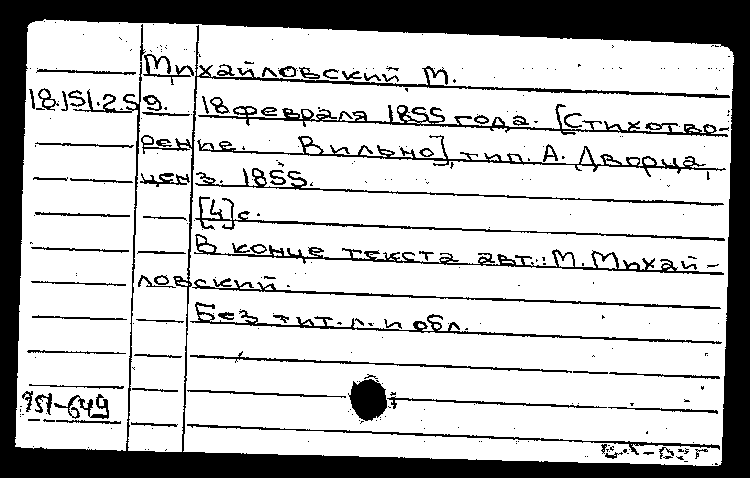 Михайловский, М.
18.151.2.59. 18 февраля 1855 года. [Стихотво-
рение. Вильно], тип. А. Дворца,
ценз. 1855.
[4] с.
В конце текста авт.: М. Михай-
ловский.
Без тит. л. и обл.
151-649